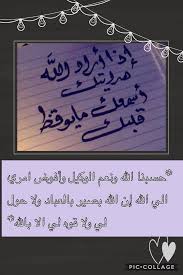 إذا أراد الله
هدايتك
أسمعك مايوقظ
قلبك
*حسبنا الله ونعم الوكيل وأفوض امري
الي الله إن الله بصير بالعباد ولا حول
لي ولا قوه لي الا بالله*
PIC-COLLAGE